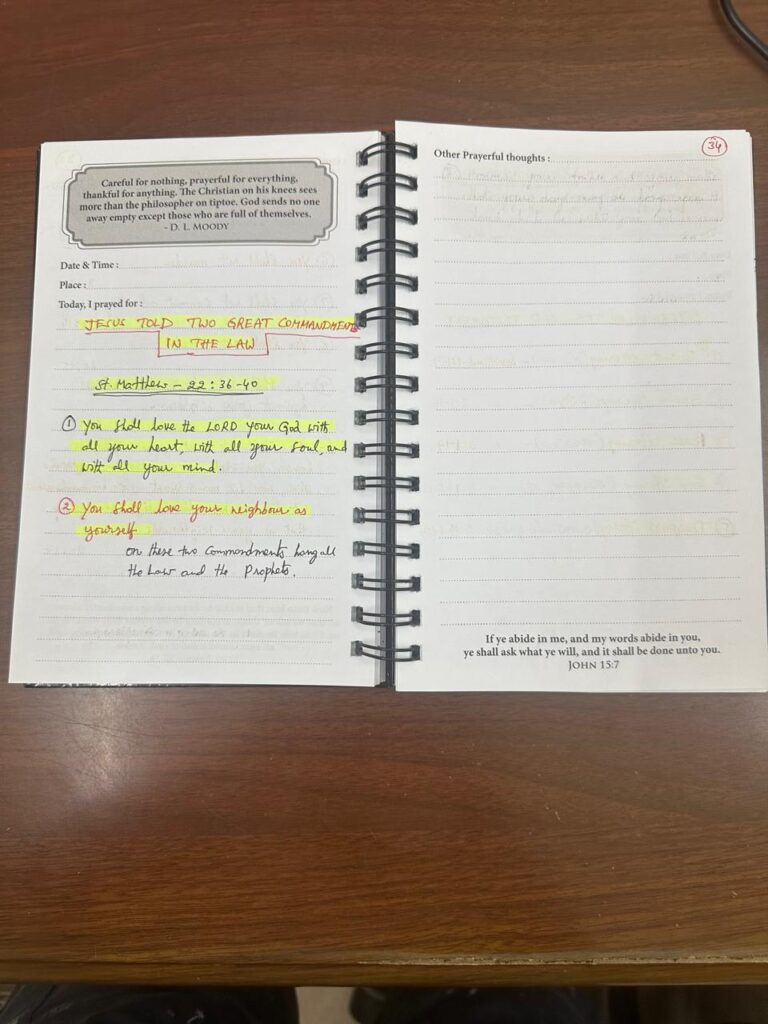 Careful for nothing, prayerful for everything,
thankful for anything. The Christian on his knees sees
more than the philosopher on tiptoe. God sends no one
away empty except those who are full of themselves.
- D. L. MOODY
Date & Time :
Place :
Today, I prayed for :
JESUS TOLD TWO GREAT COMMANDMENTS
IN THE LAW
St. Matthew - 22 : 36-40
① You shall love the LORD your God with
all your heart, with all your soul, and
with all your mind.
② You shall love your neighbour as
yourself
on these two Commandments hang all
the Law and the Prophets.
34
Other Prayerful thoughts :
If ye abide in me, and my words abide in you,
ye shall ask what ye will, and it shall be done unto you.
JOHN 15:7